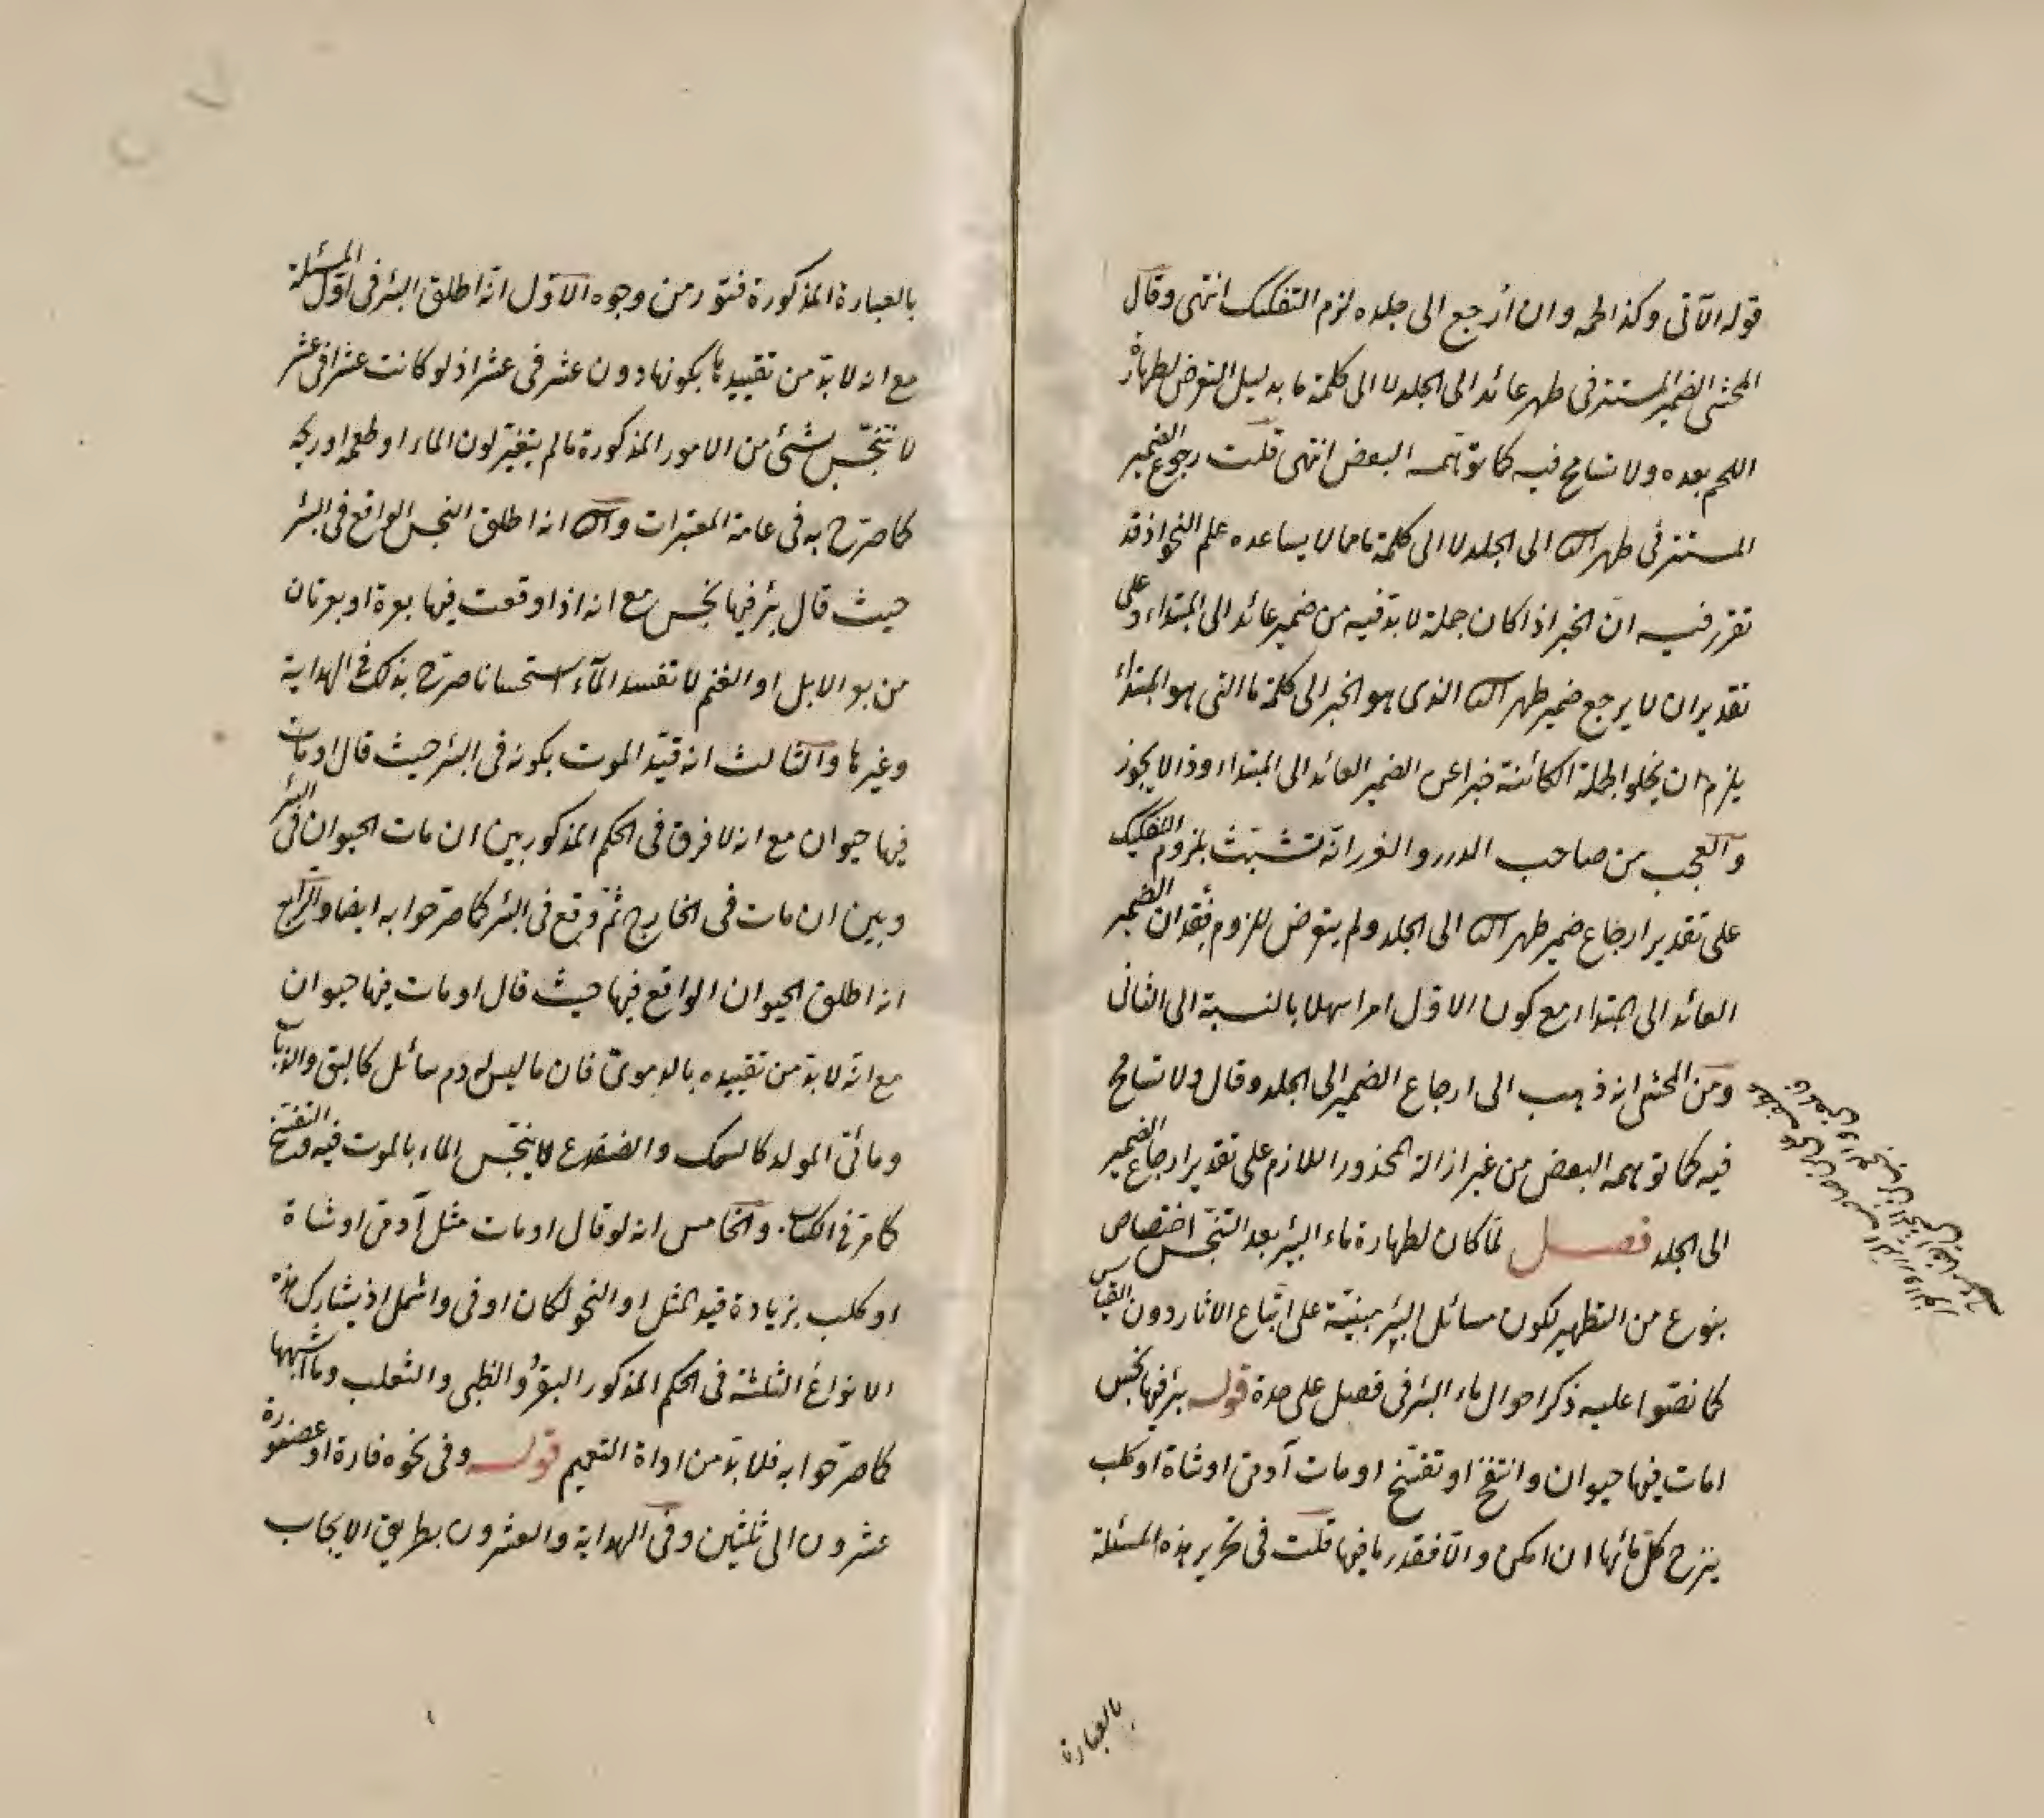 قوله الآتى وكذا لحمه وان أرجع الى جلده لزم التفكيك انتهى وقال
المحشى الضمير المستتر فى طهر عائد الى الجلد لا الى كلمة ما بدليل التعرض لطهارة
اللحم بعده ولا تسامح فيه كما توهمه البعض انتهى قلت رجوع الضمير
المستتر فى طهر الى الجلد لا الى كلمة ما مما لا يساعده علم النحو اذ قد
تقرر فيه ان الخبر اذا كان جملة لا بد فيه من ضمير عائد الى المبتداء وعلى
تقدير ان لا يرجع ضمير طهر الذى هو الخبر الى كلمة ما التى هو المبتداء
يلزم ان يخلو الجملة الكائنة خبرا عن الضمير العائد الى المبتداء وذا لا يجوز
والعجب من صاحب الدرر والغرر انه تشبث بلزوم التفكيك
على تقدير ارجاع ضمير طهر الى الجلد ولم يتعرض للزوم فقدان الضمير
العائد الى المبتداء مع كون الاول امرا سهلا بالنسبة الى الثانى
ومن المحشى انه ذهب الى ارجاع الضمير الى الجلد وقال ولا تسامح
فيه كما توهمه البعض من غير ازالة المحذور اللازم على تقدير ارجاع الضمير
الى الجلد فصل لما كان لطهارة ماء البئر بعد التنجس اختصاص
بنوع من التطهير لكون مسائل البئر مبنية على اتباع الاثار دون القياس
كما نصوا عليه ذكر احوال ماء البئر فى فصل على حدة قوله بئر فيها نجس
امات فيها حيوان وانتفخ او تفسخ او مات آدمى او شاة او كلب
ينزح كل مائها ان امكن والا فقدر ما فيها قلت فى تحرير هذه المسئلة
بالعبارة
بالعبارة المذكورة فتور من وجوه الاول انه اطلق البئر فى اول المسئلة
مع انه لا بد من تقييدها بكونها دون عشر فى عشر اذ لو كانت عشرا فى عشر
لا تنجس بشئ من الامور المذكورة ما لم يتغير لون الماء او طعمه او ريحه
كما صرح به فى عامة المعتبرات و انه اطلق النجس الواقع فى البئر
حيث قال بئر فيها نجس مع انه اذا وقعت فيها بعرة او بعرتان
من بعر الابل او الغنم لا تفسد الماء استحسانا صرح بذلك فى الهداية
وغيرها والثالث انه قيد الموت بكونه فى البئر حيث قال او مات
فيها حيوان مع انه لا فرق فى الحكم المذكور بين ان مات الحيوان فى البئر
وبين ان مات فى الخارج ثم وقع فى البئر كما صرحوا به ايضا والرابع
انه اطلق الحيوان الواقع فيها حيث قال او مات فيها حيوان
مع انه لا بد من تقييده بالدموى فان ما ليس له دم سائل كالبق والذباب
ومائى المولد كالسمك والضفدع لا ينجس الماء بالموت فيه والتفسخ
كما مر فى الكتاب والخامس انه لو قال او مات مثل آدمى او شاة
او كلب بزيادة قيد المثل او النحو لكان اوفى واشمل اذ يشارك هذه
الانواع الثلثة فى الحكم المذكور البقر والظبى والثعلب وما اشبهها
كما صرحوا به فلا بد من اداة التعميم قوله وفى نحو فارة او عصفورة
عشرون الى ثلثين وفى الهداية والعشرون بطريق الايجاب